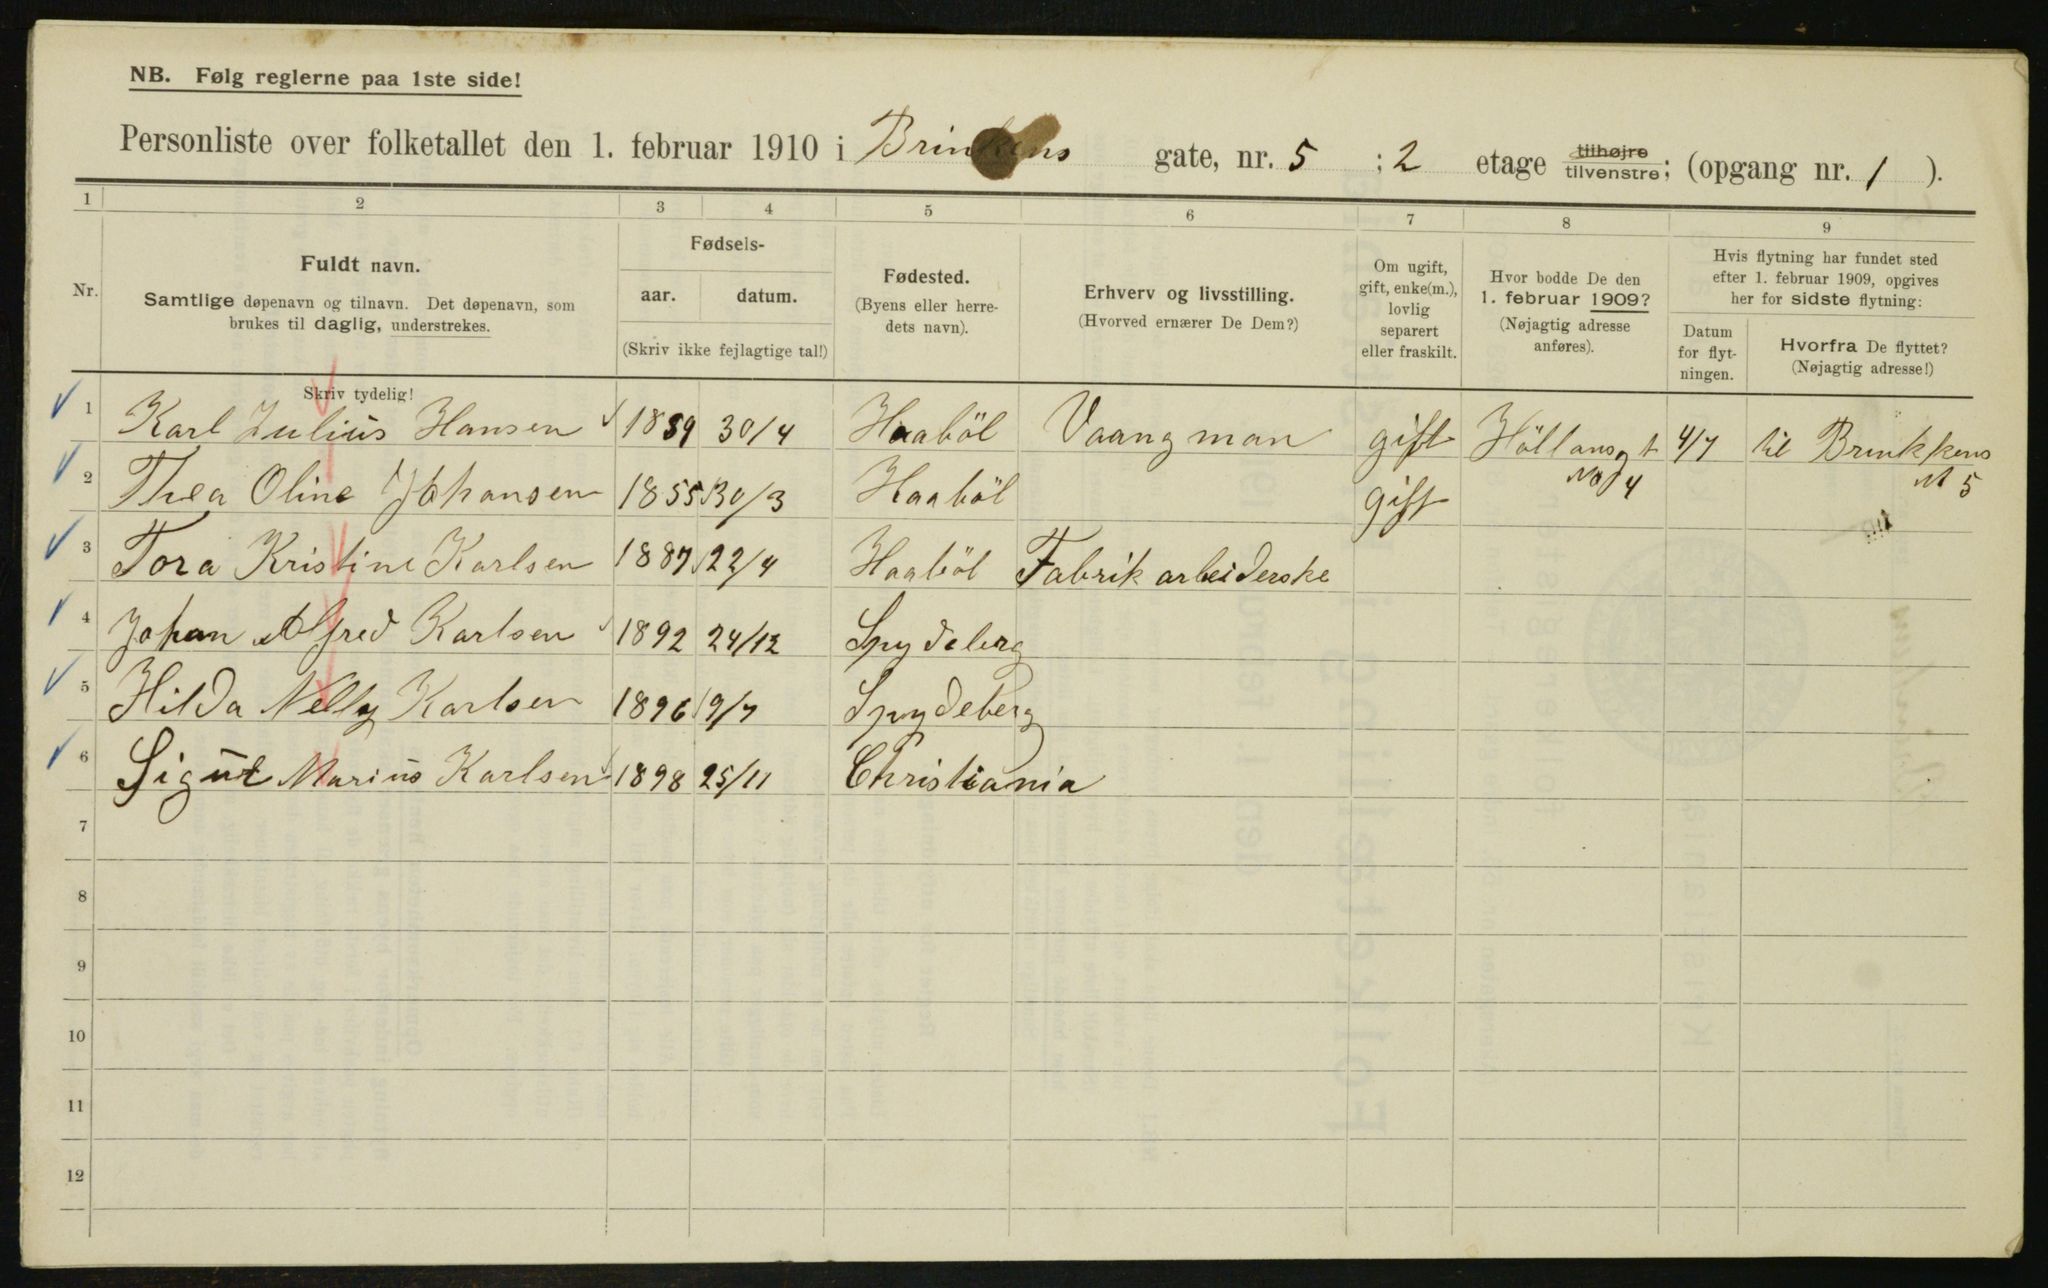 NB. Følg reglerne paa 1ste side!
Personliste over folketallet den 1. februar 1910 i Brinkens gate, nr. 5 ; 2 etage tilhøjre tilvenstre; (opgang nr. 1 ).
1 2 3 4 5 6 7 8 9
Nr.
Fuldt navn.
Samtlige døpenavn og tilnavn. Det døpenavn, som
brukes til daglig, understrekes.
Skriv tydelig!
Fødsels-
aar. datum.
(Skriv ikke fejlagtige tal!)
Fødested.
(Byens eller herre-
dets navn).
Erhverv og livsstilling.
(Hvorved ernærer De Dem?)
Om ugift,
gift, enke(m.),
lovlig
separert
eller fraskilt.
Hvor bodde De den
1. februar 1909?
(Nøjagtig adresse
anføres).
Hvis flytning har fundet sted
efter 1. februar 1909, opgives
her for sidste flytning:
Datum
for flyt-
ningen.
Hvorfra De flyttet?
(Nøjagtig adresse!)
1 Karl Julius Hansen 1859 30/4 Haaböl Vaangman gift Höllansgt 4/7 til Brinkkens
No 4 nt 5
2 Thea Oline Johansen 1855 30/3 Haaböl gift
3 Tora Kristine Karlsen 1887 22/4 Haaböl Fabrik arbeiderske
4 Johan Alfred Karlsen 1892 24/12 Spydeberg
5 Hilda Nelly Karlsen 1896 9/7 Spydeberg
6 Sigut Marius Karlsen 1898 25/11 Christiania
7
8
9
10
11
12